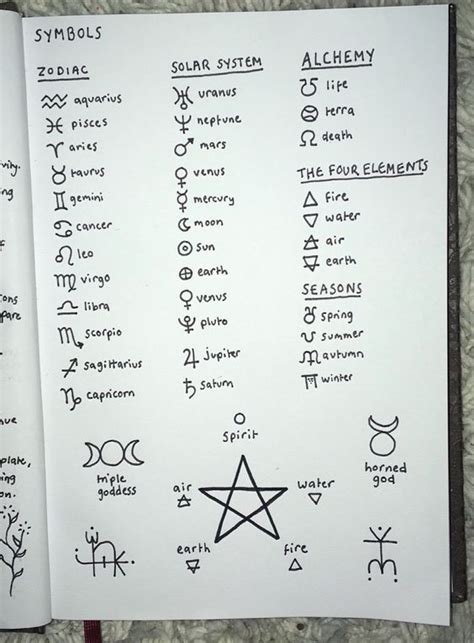 vity.
ing
f
pare
plate,
ing
on.
SYMBOLS
ZODIAC
aquarius
pisces
aries
taurus
gemini
cancer
leo
virgo
libra
scorpio
sagittarius
capricorn
SOLAR SYSTEM
uranus
neptune
mars
venus
mercury
moon
sun
earth
venus
pluto
jupiter
saturn
ALCHEMY
life
terra
death
THE FOUR ELEMENTS
fire
water
air
earth
SEASONS
spring
summer
autumn
winter
triple
goddess
spirit
air
water
earth
fire
horned
god